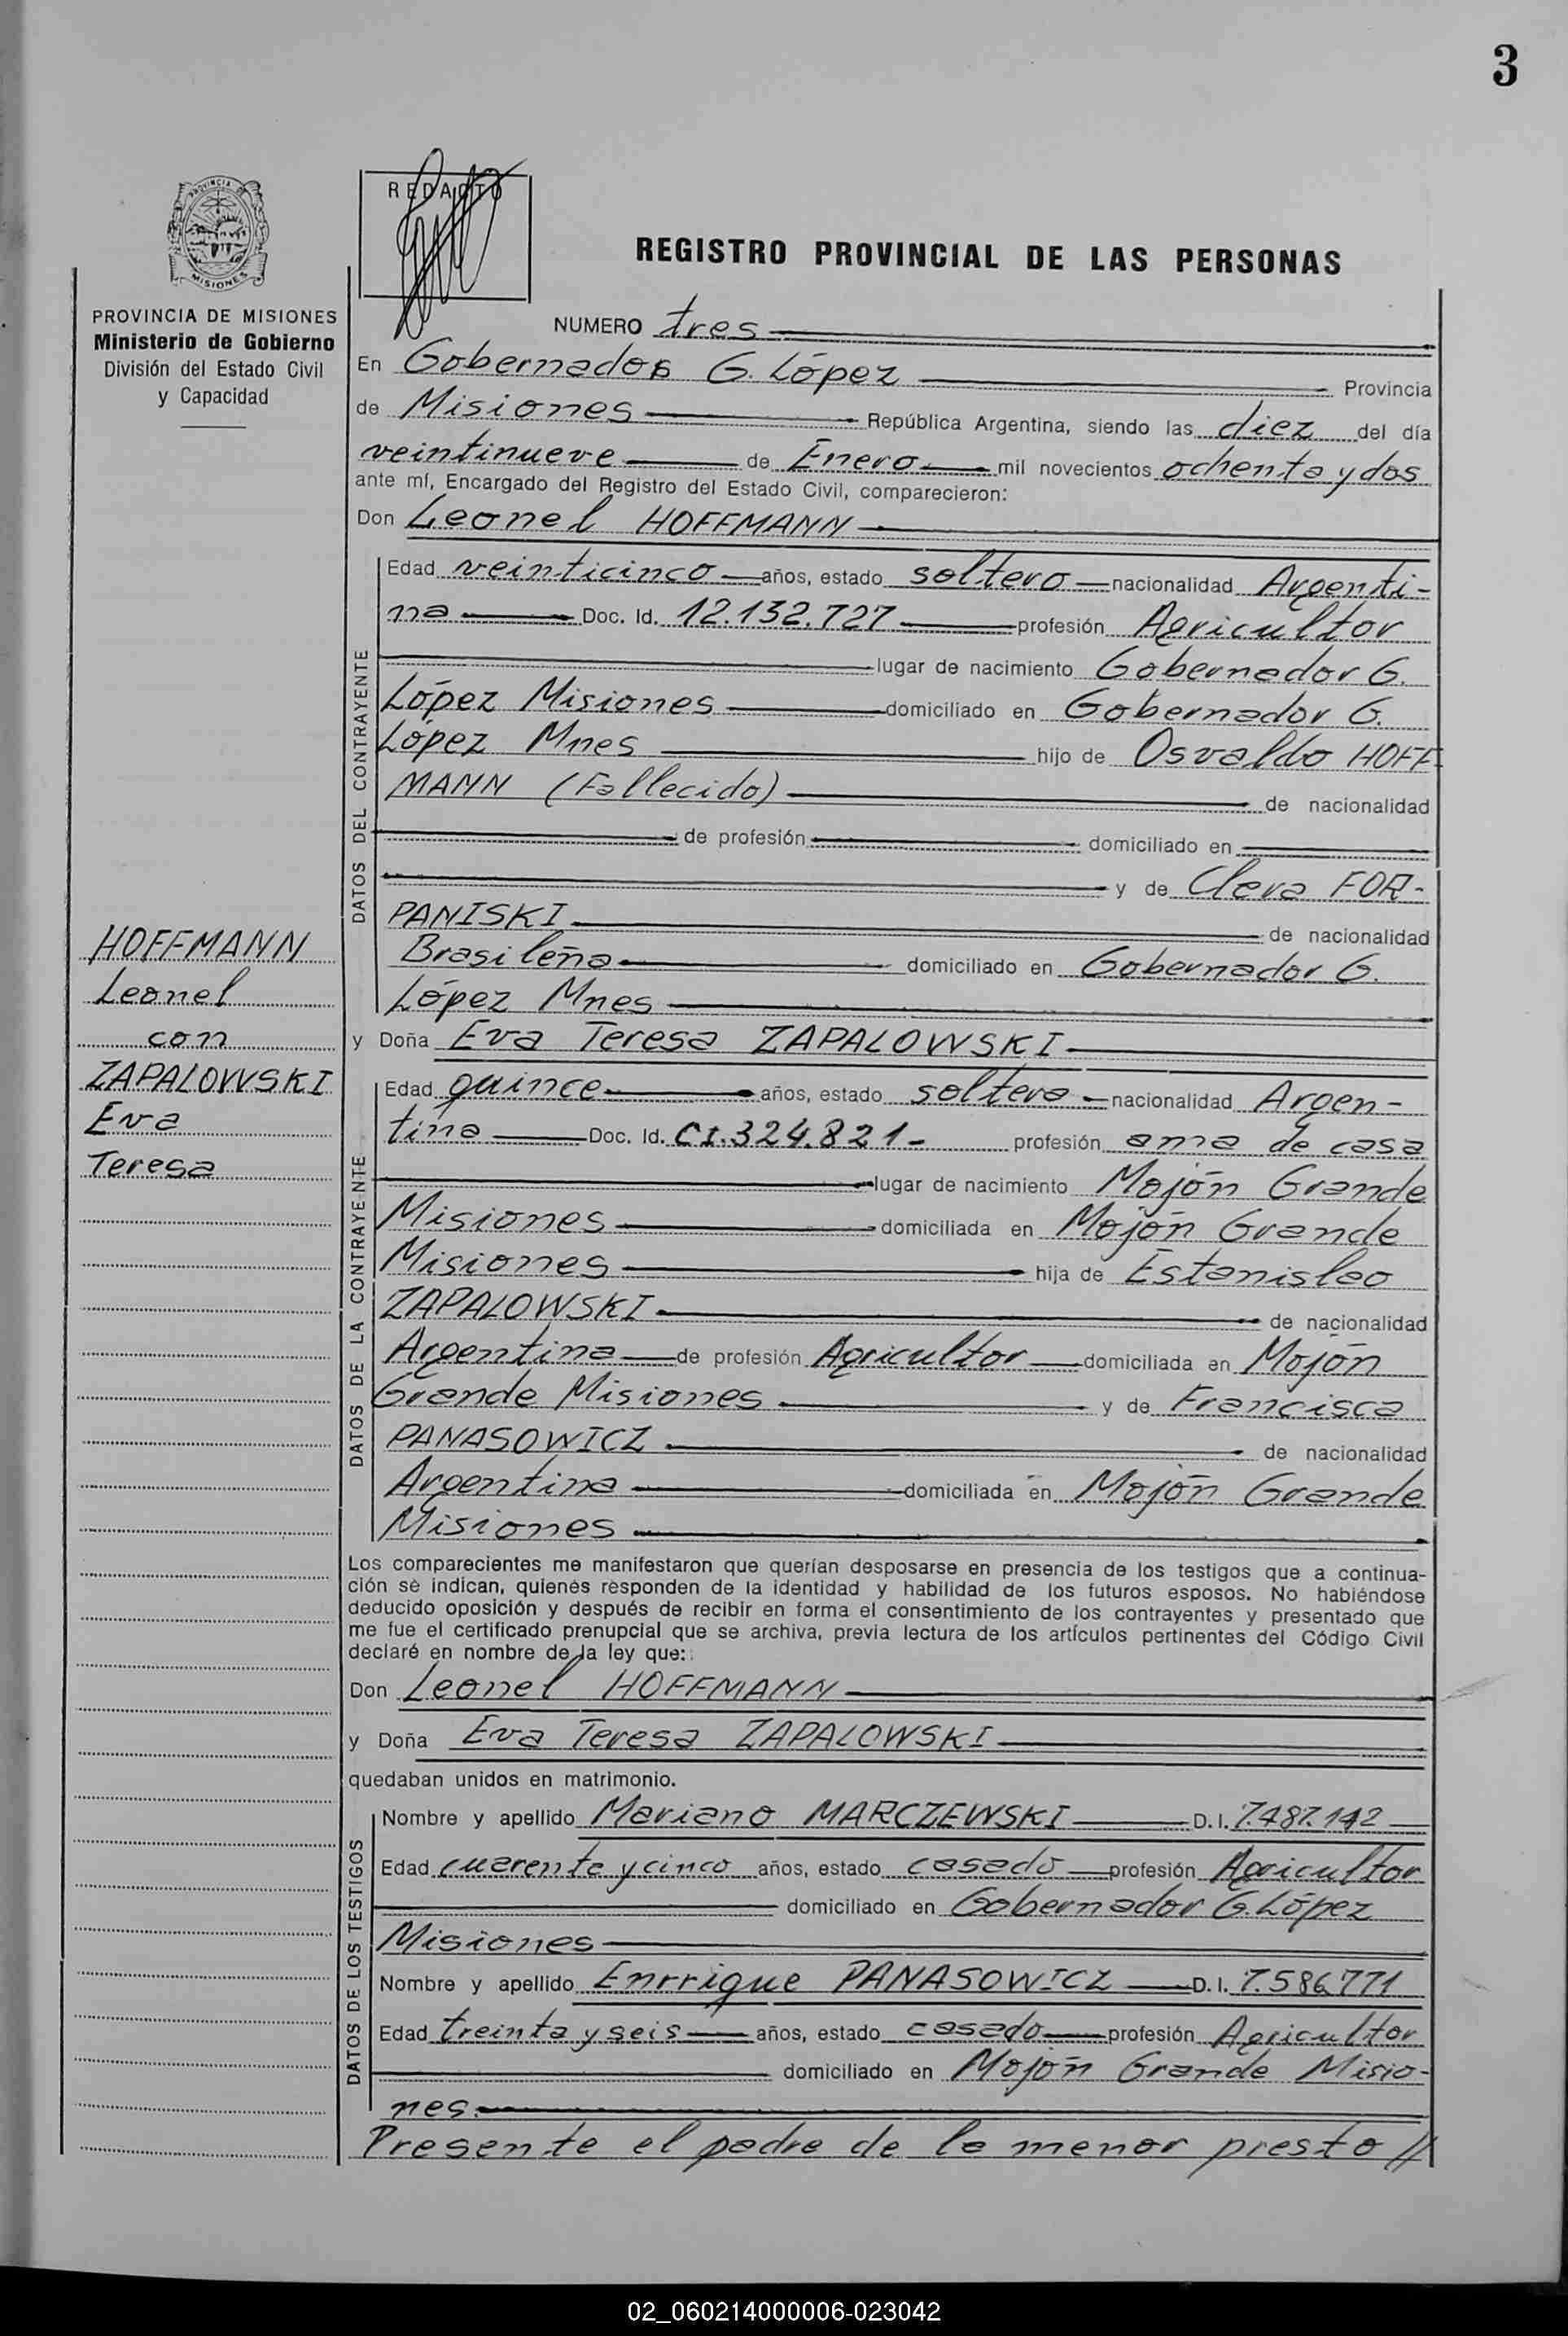 3
PROVINCIA DE
MISIONES
REDACTO
REGISTRO PROVINCIAL DE LAS PERSONAS
PROVINCIA DE MISIONES
Ministerio de Gobierno
División del Estado Civil
y Capacidad
NUMERO tres
En Gobernador G. López Provincia
de Misiones República Argentina, siendo las diez del día
veintinueve de Enero mil novecientos ochenta y dos
ante mí, Encargado del Registro del Estado Civil, comparecieron:
Don Leonel HOFFMANN
DATOS DEL CONTRAYENTE
Edad veinticinco años, estado soltero nacionalidad Argenti-
na Doc. Id. 12.132.727 profesión Agricultor
lugar de nacimiento Gobernador G.
López Misiones domiciliado en Gobernador G.
Lopez Mnes hijo de Osvaldo HOFF
MANN (Fallecido) de nacionalidad
de profesión domiciliado en
y de Cleva FOR-
PANISKI de nacionalidad
Brasileña domiciliado en Gobernador G.
López Mnes
HOFFMANN
Leonel
con
ZAPALOWSKI
Eva
Teresa
y Doña Eva Teresa ZAPALOWSKI
DATOS DE LA CONTRAYENTE
Edad quince años, estado soltera nacionalidad Argen-
tina Doc. Id. CI.324.821- profesión ama de casa
lugar de nacimiento Mojón Grande
Misiones domiciliada en Mojón Grande
Misiones hija de Estanislao
ZAPALOWSKI de nacionalidad
Argentina de profesión Agricultor domiciliada en Mojón
Grande Misiones y de Francisca
PANASOWICZ de nacionalidad
Argentina domiciliada en Mojón Grande
Misiones
Los comparecientes me manifestaron que querían desposarse en presencia de los testigos que a continua-
ción se indican, quienes responden de la identidad y habilidad de los futuros esposos. No habiéndose
deducido oposición y después de recibir en forma el consentimiento de los contrayentes y presentado que
me fue el certificado prenupcial que se archiva, previa lectura de los artículos pertinentes del Código Civil
declaré en nombre de la ley que:
Don Leonel HOFFMANN
y Doña Eva Teresa ZAPALOWSKI
quedaban unidos en matrimonio.
DATOS DE LOS TESTIGOS
Nombre y apellido Mariano MARCZEWSKI D.I. 7.487.142
Edad cuarenta y cinco años, estado casado profesión Agricultor
domiciliado en Gobernador G. López
Misiones
Nombre y apellido Enrrique PANASOWICZ D.I. 7.586.771
Edad treinta y seis años, estado casado profesión Agricultor
domiciliado en Mojón Grande Misio-
nes.
Presente el padre de la menor presto //
02_060214000006-023042